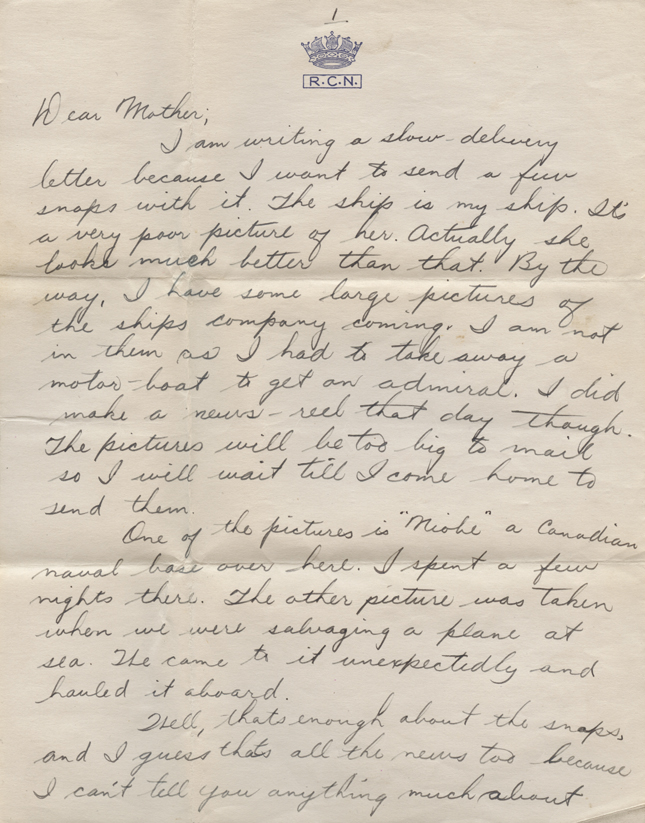 1
R.C.N.
Dear Mother;
I am writing a slow-delivery
letter because I want to send a few
snaps with it. The ship is my ship. It's
a very poor picture of her. Actually she
looks much better than that. By the
way, I have some large pictures of
the ships company coming. I am not
in them as I had to take away a
motor-boat to get an admiral. I did
make a news-reel that day though.
The pictures will be too big to mail
so I will wait till I come home to
send them.
One of the pictures is "Niobe" a Canadian
naval base over here. I spent a few
nights there. The other picture was taken
when we were salvaging a plane at
sea. We came to it unexpectedly and
hauled it aboard.
Well, thats enough about the snaps,
and I guess thats all the news too because
I can't tell you anything much about